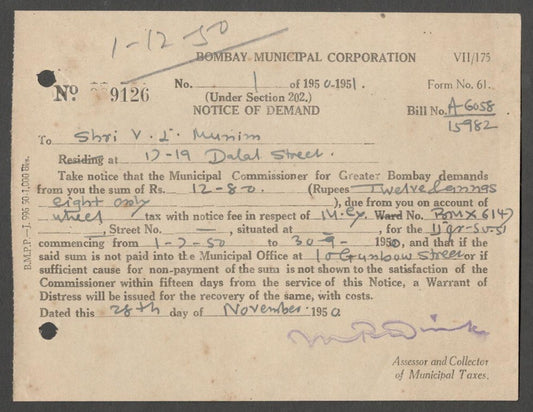 1-12-50
BOMBAY MUNICIPAL CORPORATION VII/175
No. 1 of 1950-1951. Form No. 61.
Nº 9126 (Under Section 202.) Bill No. A-6058
NOTICE OF DEMAND 15982
To Shri V. J. Munim
Residing at 17-19 Dalal Street.
Take notice that the Municipal Commissioner for Greater Bombay demands
from you the sum of Rs. 12-8-0. (Rupees Twelve & annas
eight only ), due from you on account of
wheel tax with notice fee in respect of M. Cy. Ward No. BMX 6147
, Street No. — , situated at — , for the II qr 50-51
commencing from 1-7-50 to 30-9- 1950, and that if the
said sum is not paid into the Municipal Office at Street or if
sufficient cause for non-payment of the sum is not shown to the satisfaction of the
Commissioner within fifteen days from the service of this Notice, a Warrant of
Distress will be issued for the recovery of the same, with costs.
Dated this 28th day of November 1950.
Assessor and Collector
of Municipal Taxes.